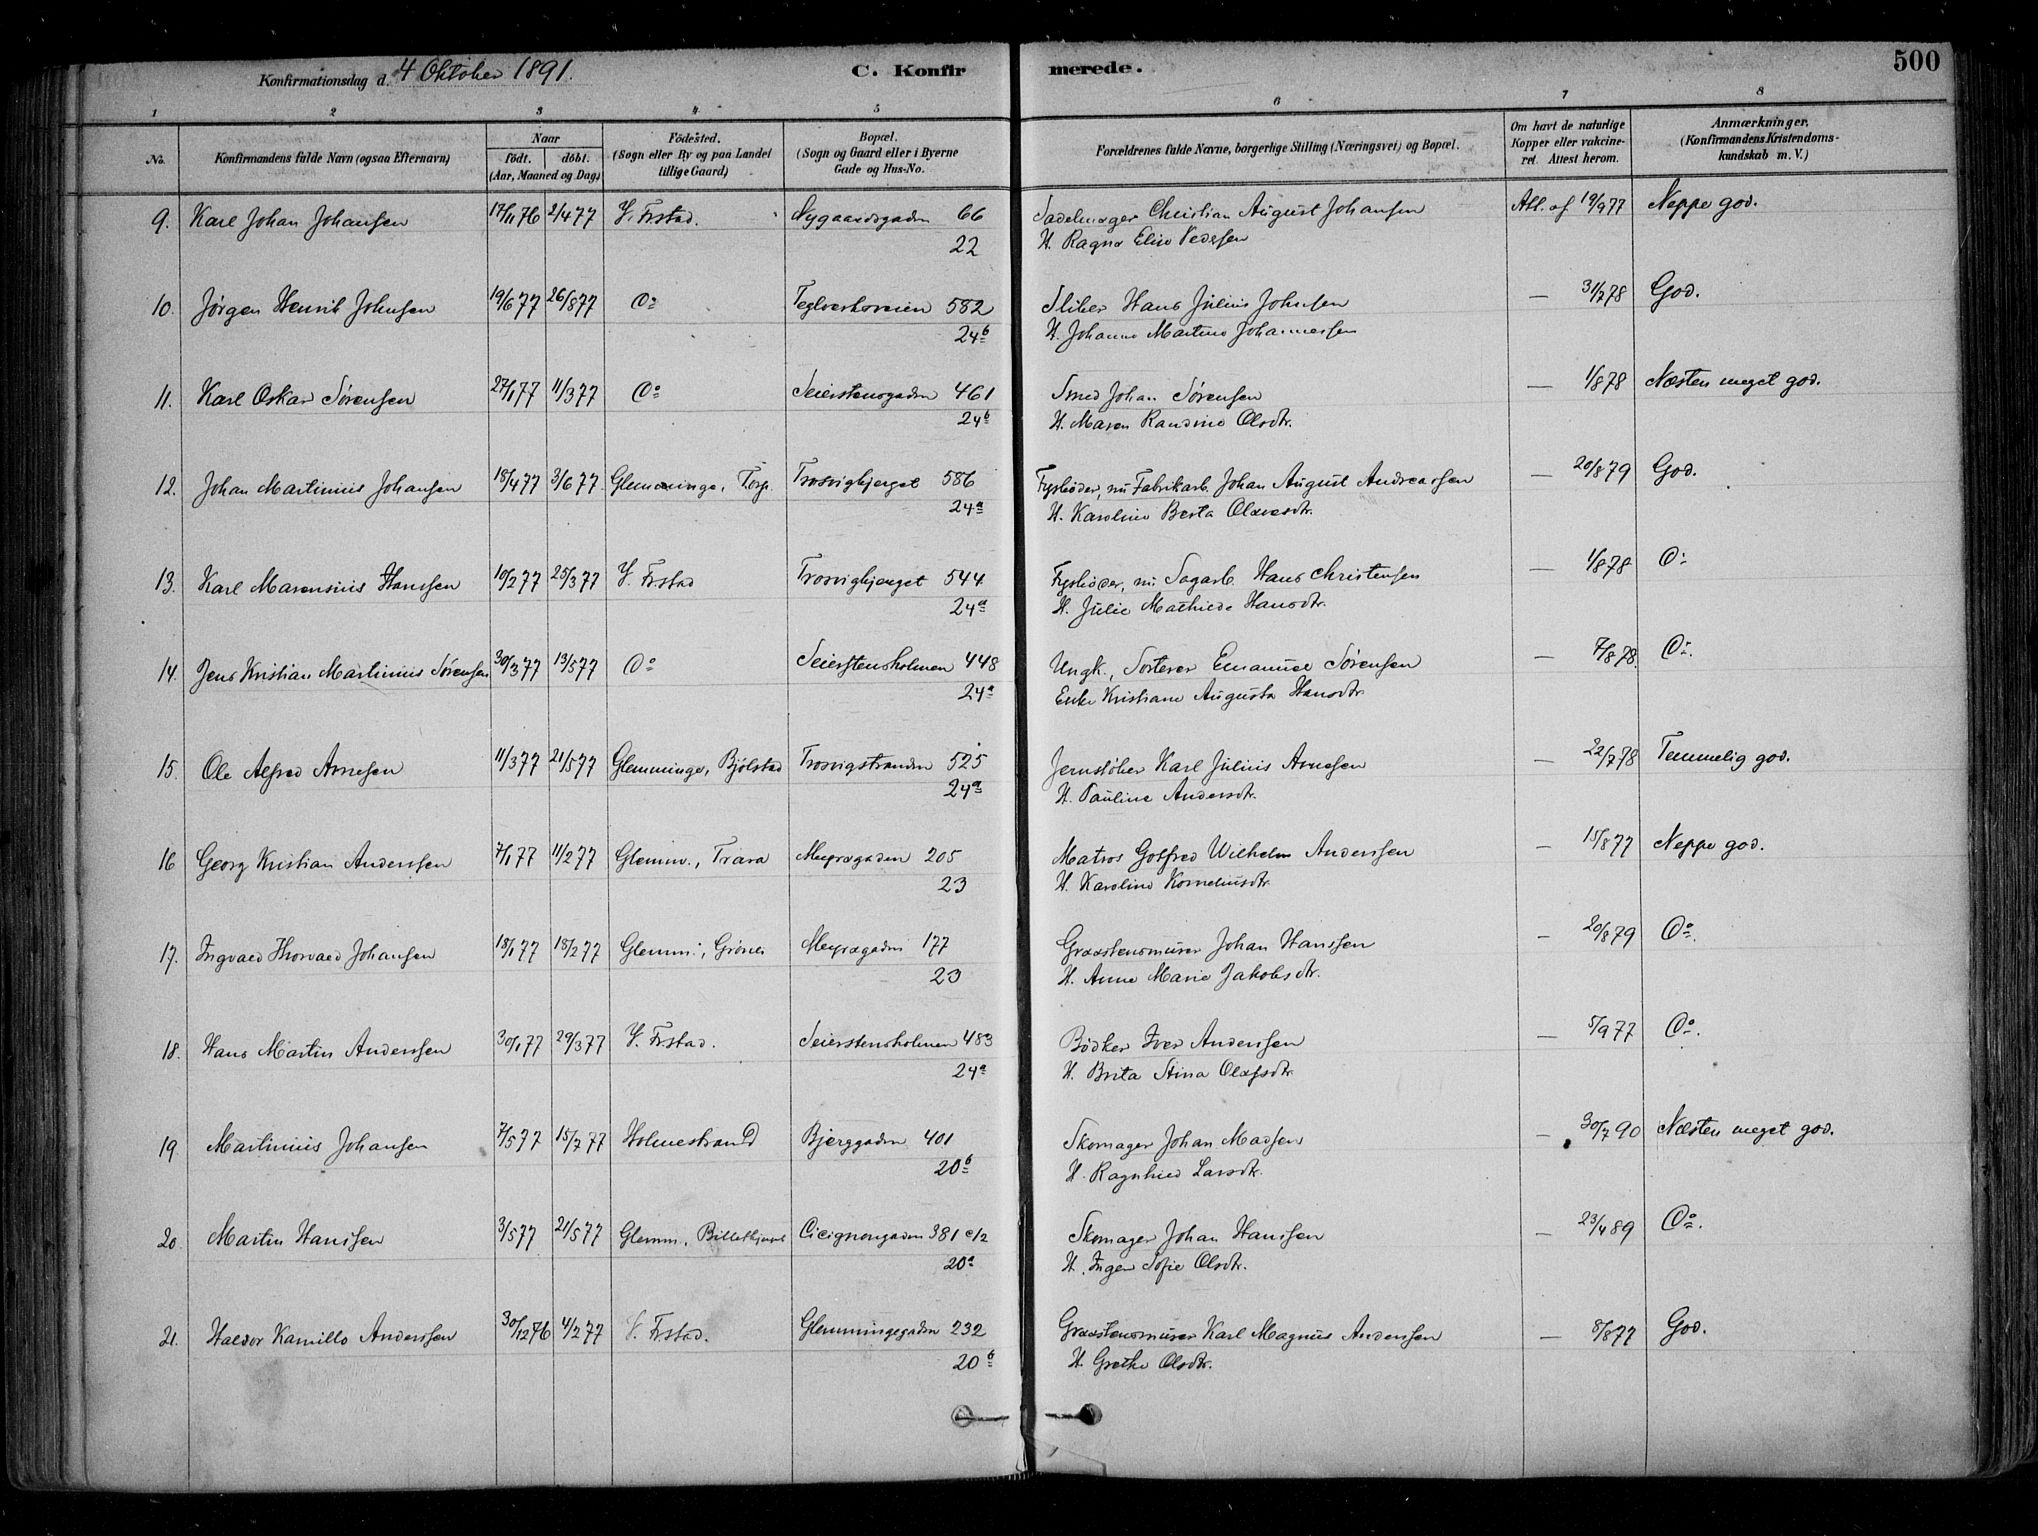 Konfirmationsdag d. 4 Oktober 1891.
C. Konfirmerede.
500
1 2 3 4 5 6 7 8
No.
Konfirmandens fulde Navn (ogsaa Efternavn)
Naar
født. døbt.
(Aar, Maaned og Dag)
Fødested.
(Sogn eller By og paa Landet
tillige Gaard)
Bopæl.
(Sogn og Gaard eller i Byerne
Gade og Hus-No.
Forældrenes fulde Navne, borgerlige Stilling (Næringsvei) og Bopæl.
Om havt de naturlige
Kopper eller vakcine-
ret. Attest herom.
Anmærkninger.
(Konfirmandens Kristendoms-
kundskab m. V.)
9. Karl Johan Johansen 17/11 76 2/4 77 V. Frstad. Nygaardsgaden 66 Sadelmager Christian August Johansen Att. af 19/9 77 Neppe god.
22 H. Ragna Elise Pedersen
10. Jørgen Henrik Johnsen 19/6 77 26/8 77 Do Teglverksveien 582 Sliber Hans Julius Johnsen — 31/7 78 God.
24b H. Johanne Martine Johannessen
11. Karl Oskar Sørensen 27/1 77 11/3 77 Do Seierstensgaden 461 Smed Johan Sørensen — 1/8 78 Næsten meget god.
24b H. Maren Randine Olsdtr.
12. Johan Martinius Johansen 18/4 77 3/6 77 Glemminge, Torp. Trosvigbjerget 586 Fyrbøder, nu Fabrikarb. Johan August Andreassen — 20/8 79 God.
24a H. Karoline Berta Olavesdtr.
13. Karl Marensius Hanssen 10/2 77 25/3 77 V. Frstad Trosvigbjerget 544 Fyrbøder, nu Sagarb. Hans Christensen — 1/8 78 Do
24a H. Julie Mathilde Hansdtr.
14. Jens Kristian Martinius Sørensen 30/3 77 13/5 77 Do Seierstensholmen 448 Ungk., Sorterer Emanuel Sørensen — 7/8 78. Do.
24a Enke Kristiane Augusta Hansdtr.
15. Ole Alfred Arnesen 11/3 77 21/5 77 Glemminge, Bjølstad Trosvigstranden 525 Jernstøber Karl Julius Arnesen — 22/7 78 Temmelig god.
24a H. Pauline Andersdtr.
16 Georg Kristian Anderssen 7/1 77 11/2 77 Glemm., Trara Meyragaden 205 Matros Gotfred Wilhelm Anderssen — 15/8 77 Neppe god.
23 H. Karoline Korneliusdtr.
17. Ingvald Thorvald Johansen 18/1 77 18/2 77 Glemm., Grønli Meyragaden 177 Graastensmurer Johan Hanssen — 20/8 79 Do.
23 H. Anne Marie Jakobsdtr.
18. Hans Martin Anderssen 30/1 77 29/3 77 V. Frstad. Seierstensholmen 483 Bødker Iver Anderssen — 5/9 77 Do.
24a H. Brita Stina Olafsdtr.
19 Martinius Johansen 7/5 77 15/7 77 Holmestrand Bjerggaden 401 Skomager Johan Madsen — 30/7 90 Næsten meget god.
20b H. Ragnhild Larsdtr.
20. Martin Hanssen 3/5 77 21/5 77 Glemm. Cicignongaden 381 c/2 Skomager Johan Hanssen — 23/4 89 Do.
20a H. Inger Sofie Olsdtr.
21. Haldor Kamillo Anderssen 30/12 76 4/2 77 V. Frstad. Glemmingegaden 232 Graastensmurer Karl Magnus Anderssen — 8/8 77 God.
20b H. Grethe Olsdtr.